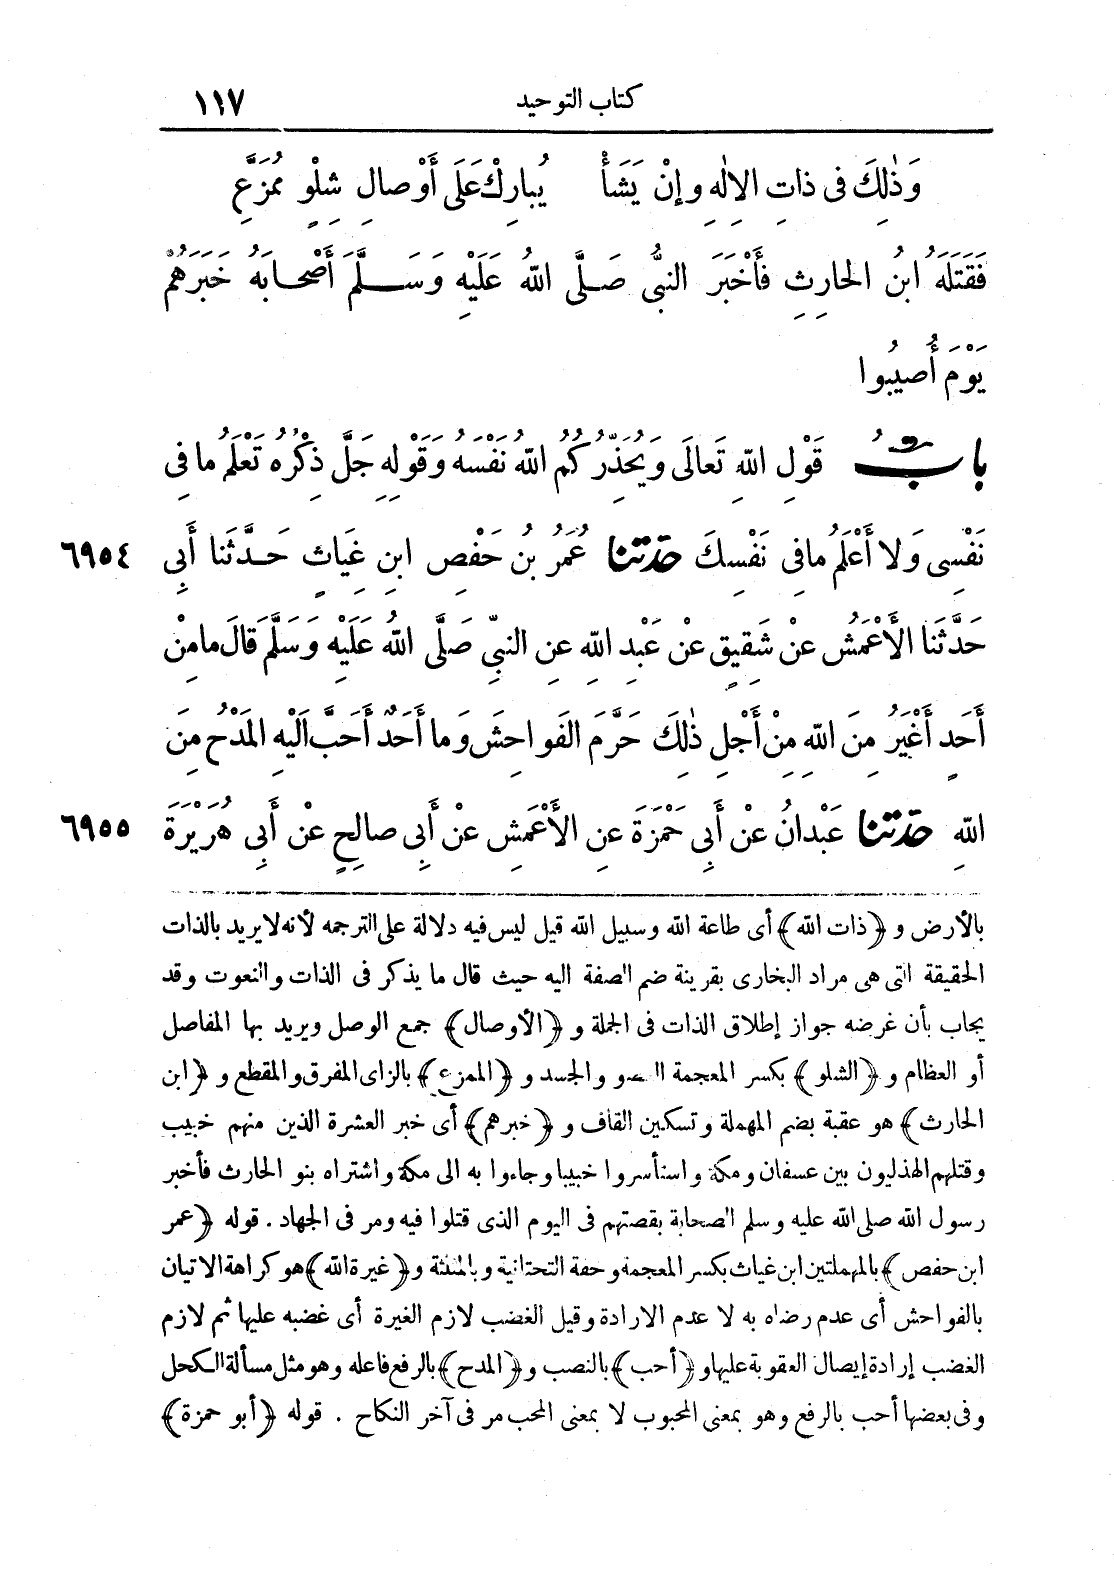 كتاب التوحيد ١١٧
وَذٰلِكَ فى ذاتِ الإِلٰهِ وإنْ يَشَأْ يُبارِكْ عَلَى أَوْصالِ شِلْوٍ مُمَزَّعِ
فَقَتَلَهُ ابنُ الحارِثِ فَأَخْبَرَ النبىُّ صَلَّى اللهُ عَلَيْهِ وَسَلَّمَ أَصْحابَهُ خَبَرَهُمْ
يَوْمَ أُصِيبُوا
بابُ قَوْلِ اللهِ تَعالَى وَيُحَذِّرُكُمُ اللهُ نَفْسَهُ وَقَوْلِهِ جَلَّ ذِكْرُهُ تَعْلَمُ ما فِى
نَفْسِى وَلا أَعْلَمُ مافِى نَفْسِكَ حدثنا عُمَرُ بنُ حَفْصِ ابنِ غِياثٍ حَدَّثَنا أَبِى ٦٩٥٤
حَدَّثَنا الأَعْمَشُ عنْ شَقِيقٍ عنْ عَبْدِ اللهِ عنِ النبىِّ صَلَّى اللهُ عَلَيْهِ وَسَلَّمَ قالَ مامِنْ
أَحَدٍ أَغْيَرُ مِنَ اللهِ مِنْ أَجْلِ ذٰلِكَ حَرَّمَ الفَواحِشَ وَما أَحَدٌ أَحَبَّ الَيْهِ المَدْحُ مِنَ
اللهِ حدثنا عَبْدانُ عنْ أَبِى حَمْزَةَ عنِ الأَعْمَشِ عنْ أَبِى صالِحٍ عنْ أَبِى هُرَيْرَةَ ٦٩٥٥
بالأرض و ﴿ذات الله﴾ أى طاعة الله وسبيل الله قيل ليس فيه دلالة على الترجمه لأنه لا يريد بالذات
الحقيقة التى هى مراد البخارى بقرينة ضم الصفة اليه حيث قال ما يذكر فى الذات والنعوت وقد
يجاب بأن غرضه جواز إطلاق الذات فى الجملة و ﴿الأوصال﴾ جمع الوصل ويريد بها المفاصل
أو العظام و ﴿الشلو﴾ بكسر المعجمة العضو والجسد و ﴿الممزع﴾ بالزاى المفرق والمقطع و ﴿ابن
الحارث﴾ هو عقبة بضم المهملة وتسكين القاف و ﴿خبرهم﴾ أى خبر العشرة الذين منهم خبيب
وقتلهم الهذليون بين عسفان ومكة واستأسروا خبيبا وجاءوا به الى مكة واشتراه بنو الحارث فأخبر
رسول الله صلى الله عليه وسلم الصحابة بقصتهم فى اليوم الذى قتلوا فيه ومر فى الجهاد . قوله ﴿عمر
ابن حفص﴾ بالمهملتين ابن غياث بكسر المعجمة وخفة التحتانية وبالمثلثة و ﴿غيرة الله﴾ هو كراهة الاتيان
بالفواحش أى عدم رضاه به لا عدم الارادة وقيل الغضب لازم الغيرة أى غضبه عليها ثم لازم
الغضب إرادة إيصال العقوبة عليها و ﴿أحب﴾ بالنصب و ﴿المدح﴾ بالرفع فاعله وهو مثل مسألة الكحل
وفى بعضها أحب بالرفع وهو بمعنى المحبوب لا بمعنى المحب مر فى آخر النكاح . قوله ﴿أبو حمزة﴾